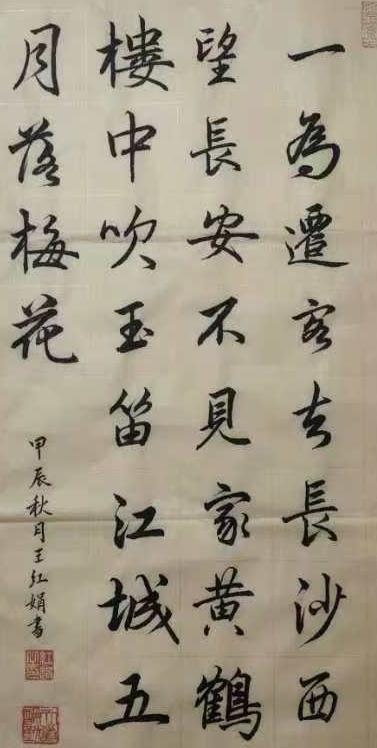 一為遷客去長沙西
望長安不見家黃鶴
樓中吹玉笛江城五
月落梅花
甲辰秋月王红娟書